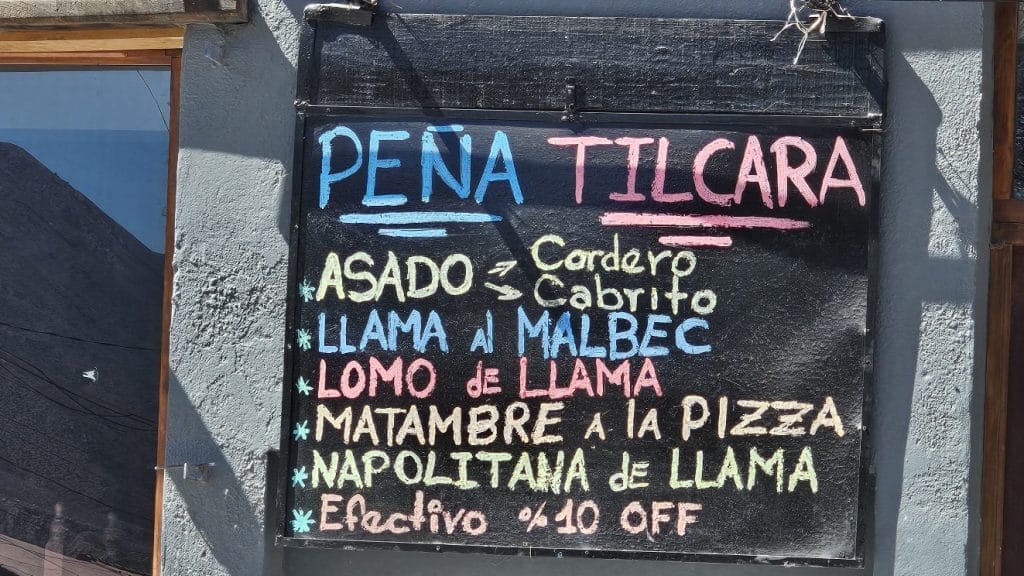 PEÑA TILCARA
* ASADO Cordero
Cabrito
* LLAMA al MALBEC
* LOMO de LLAMA
* MATAMBRE A la PIZZA
* NAPOLITANA de LLAMA
* Efectivo %10 OFF